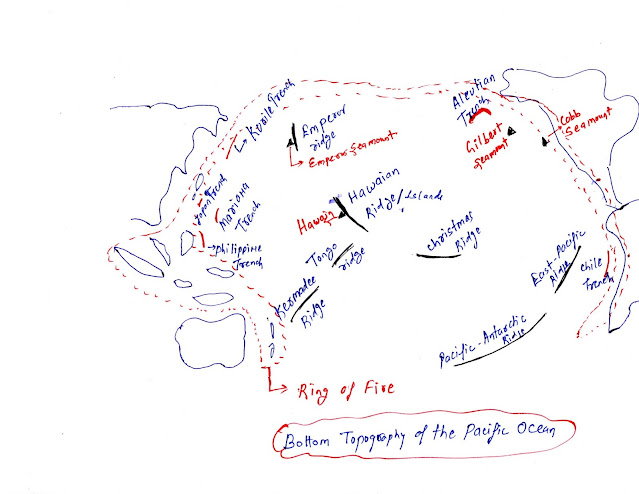 Kurile Trench
Emperor
ridge
Emperor Seamount
Aleutian
Trench
Gilbert
Seamount
Cobb
Seamount
Japan Trench
Mariana
Trench
Philippine
Trench
Hawaiian
Ridge/Islands
Hawain
Tongo
ridge
Christmas
Ridge
Kermadec
Ridge
East-Pacific
Ridge
Chile
Trench
Pacific-Antarctic
Ridge
Ring of Fire
Bottom Topography of the Pacific Ocean